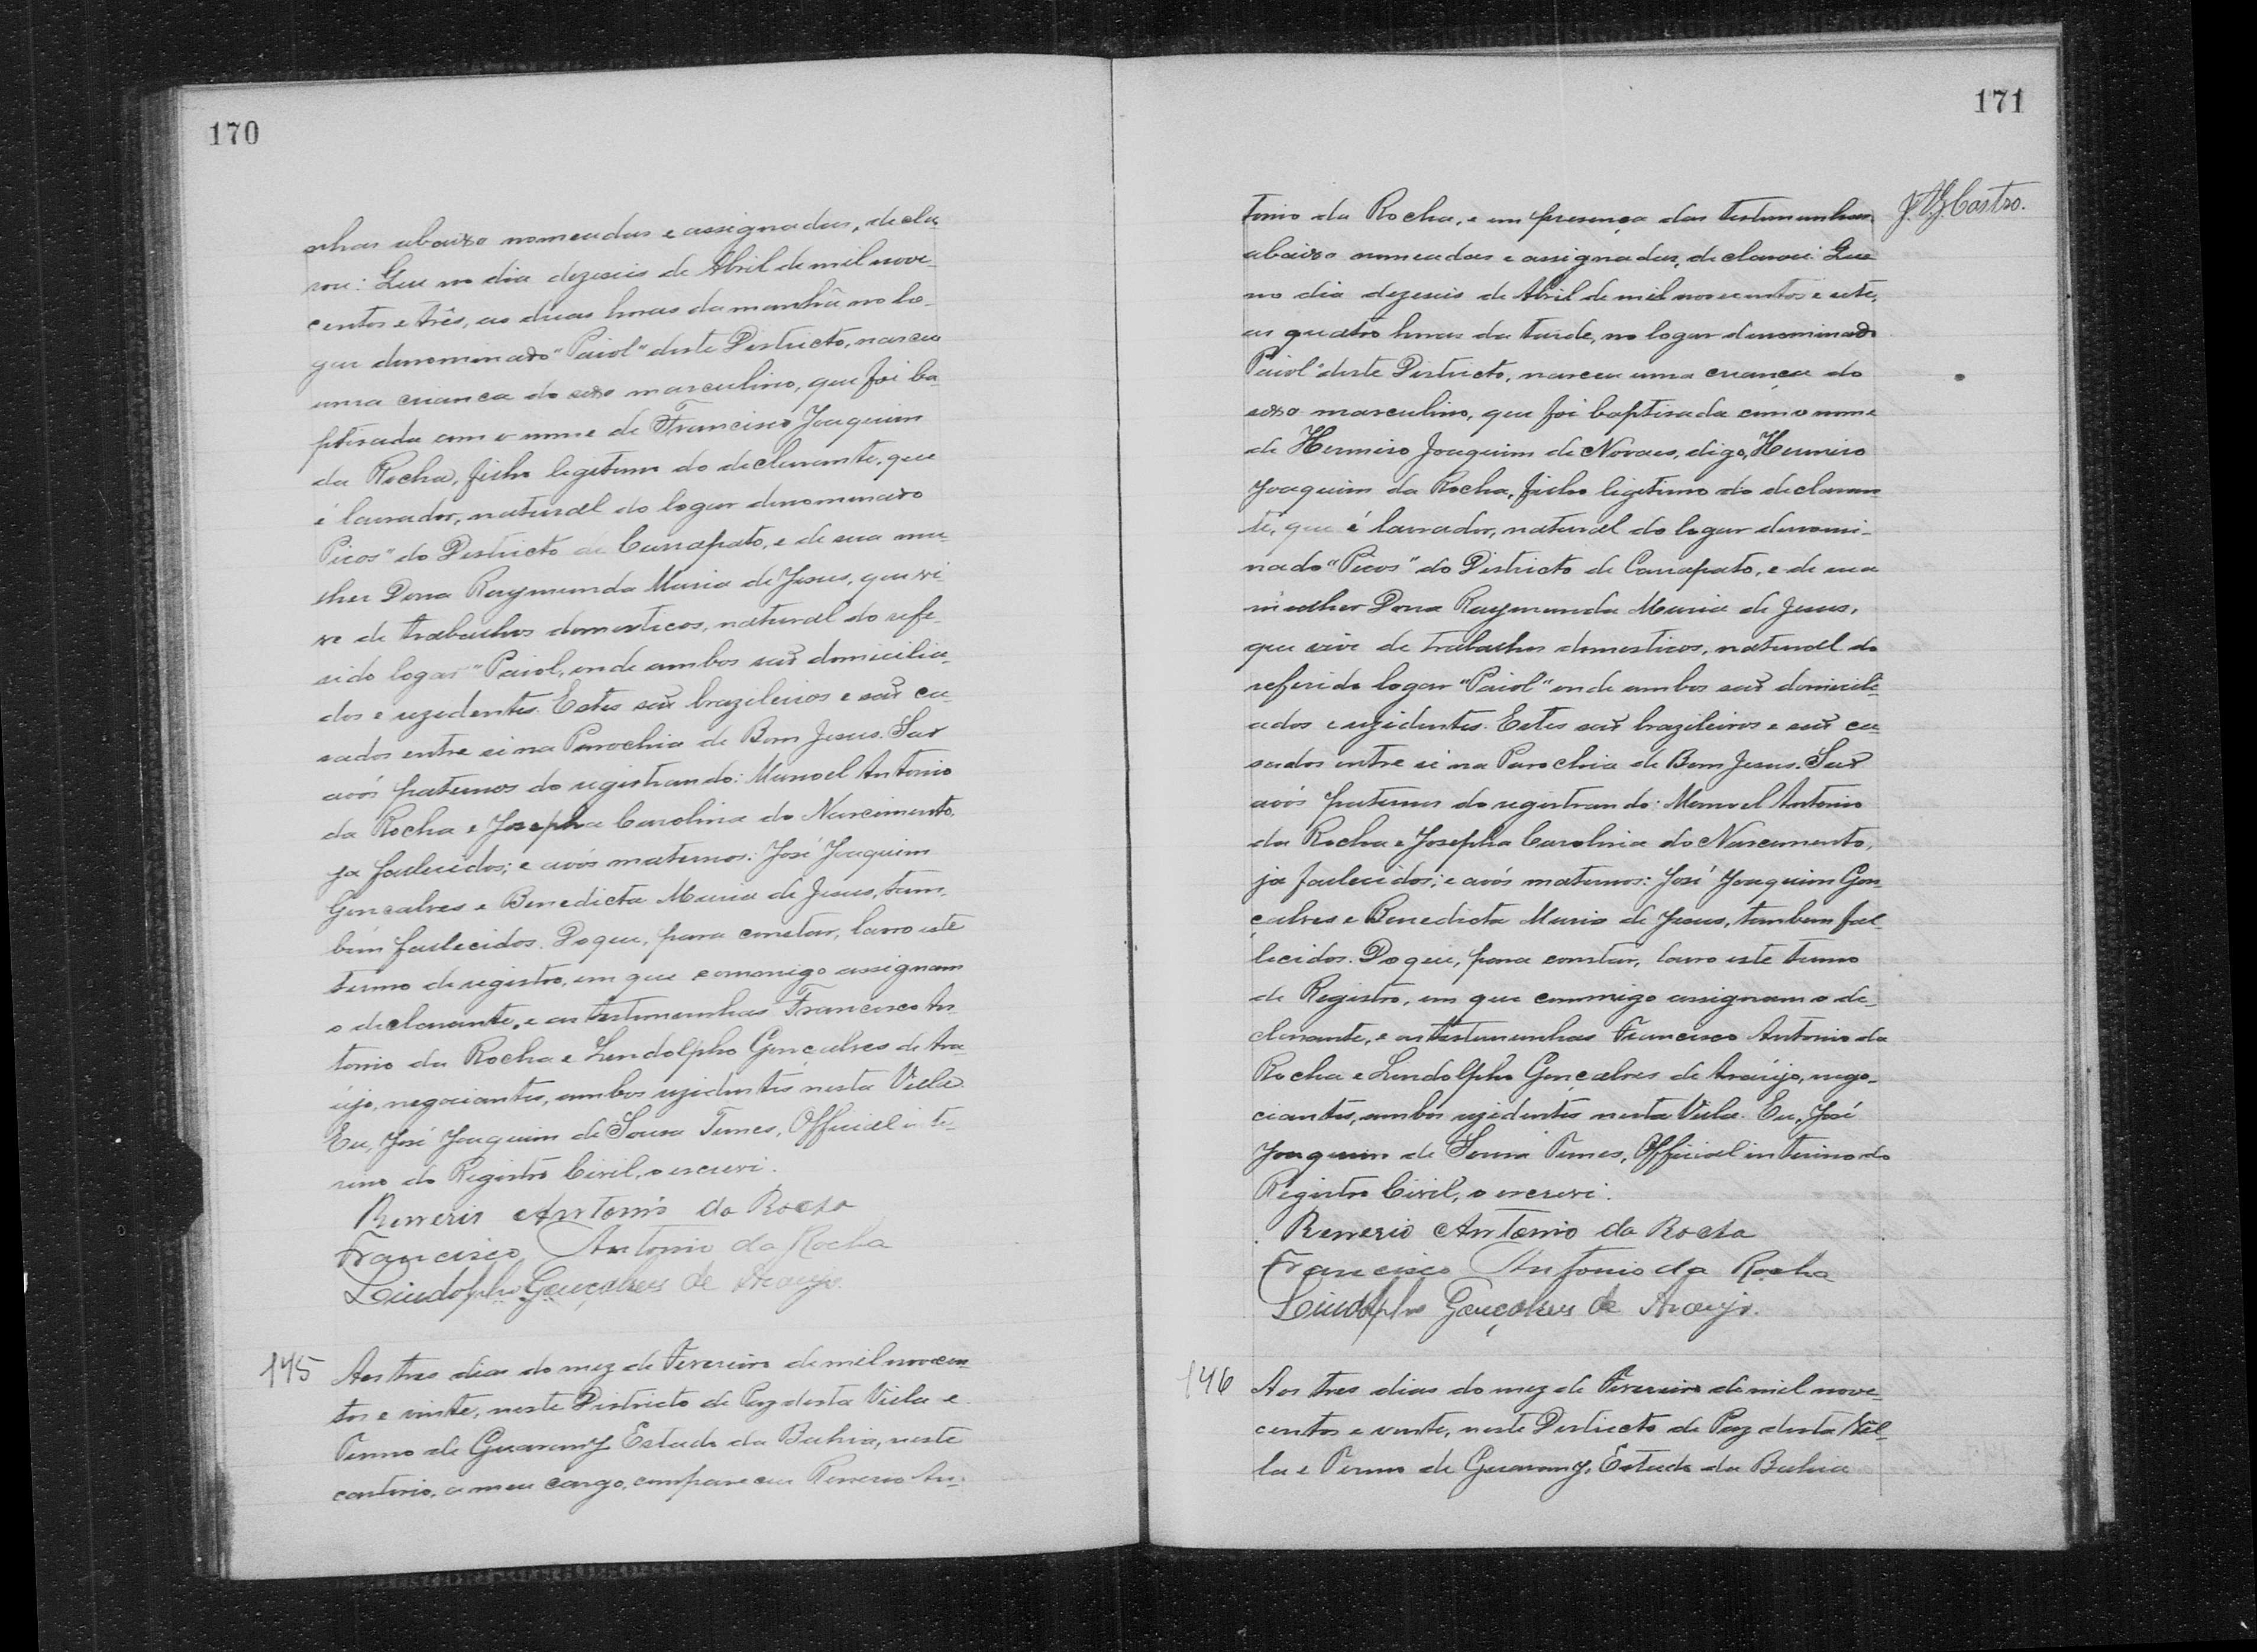 170
nhas abaixo nomeadas e assignadas, decla-
rou: Que no dia dezeseis de Abril de mil nove-
centos e três, as duas horas da manhã no lo-
gar denominado "Paiol" deste Districto, nasceu
uma criança do sexo masculino, que foi ba-
ptisada com o nome de Francisco Joaquim
da Rocha, filho legitimo do declarante, que
é lavrador, natural do logar denominado
Picos" do Districto de Carrapato, e de sua mu-
lher Dona Raymunda Maria de Jesus, que vi-
ve de trabalhos domesticos, natural do refe-
rido logar "Paiol, onde ambos são domicilia-
dos e rezidentes. Estes são brazileiros e são ca-
sados entre si na Parochia de Bom Jesus. São
avós paternos do registrando: Manoel Antonio
da Rocha e Josepha Carolina do Nascimento,
ja fallecidos; e avós maternos: José Joaquim
Gonçalves e Benedicta Maria de Jesus, tam-
bem fallecidos. Do que, para constar, lavro este
termo de registro, em que commigo assignam
o declarante, e as testemunhas Francisco An-
tonio da Rocha e Lindolpho Gonçalves de Ara-
újo, negociantes, ambos rezidentes nesta Villa.
Eu, José Joaquim de Sousa Tunes, Official inte-
rino do Registro Civil, o escrevi.
Renerio Antonio da Rocha
Francisco Antonio da Rocha
Lindolpho Gonçalves de Araujo.
145 Aos tres dias do mez de Fevereiro de mil novecen-
tos e vinte, neste Districto de Paz desta Villa e
Termo de Guarany Estado da Bahia, neste
cartorio, a meu cargo, compareceu Renerio An-
171
tonio da Rocha, e em presença das testemunhas
abaixo nomeadas e assignadas, declarou: Que
no dia dezeseis de Abril de mil novecentos e sete,
as quatro horas da tarde, no logar denominado
Paiol" deste Districto, nasceu uma criança do
sexo masculino, que foi baptisada com o nome
de Hermiro Joaquim de Novaes, digo, Hermiro
Joaquim da Rocha, filho ligitimo do declaran-
te, que é lavrador, natural do logar denomi-
nado "Picos" do Districto de Carrapato, e de sua
mulher Dona Raymunda Maria de Jesus,
que vive de trabalhos domesticos, natural do
referido logar "Paiol" onde ambos são domicili-
ados e rezidentes. Estes são brazileiros e são ca-
sados entre si na Parochia de Bom Jesus. São
avós paternos do registrando: Manoel Antonio
da Rocha e Josepha Carolina do Nascimento,
ja fallecidos; e avós maternos: José Joaquim Gon-
çalves e Benedicta Maria de Jesus, tambem fal-
lecidos. Do que, para constar, lavro este termo
de Registro, em que commigo assignam o de-
clarante, e as testemunhas Francisco Antonio da
Rocha e Lindolpho Gonçalves de Araújo, nego-
ciantes, ambos rezidentes nesta Villa. Eu, José
Joaquim de Sousa Tunes, Official interino do
Registro Civil, o escrevi.
Renerio Antonio da Rocha
Francisco Antonio da Rocha
Lindolpho Gonçalves de Araujo.
146 Aos tres dias do mez de Fevereiro de mil nove-
centos e vinte, neste Districto de Paz desta Vil-
la e Termo de Guarany, Estado da Bahia
Castro.